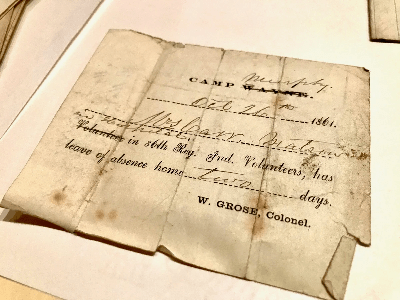 Murphy.
CAMP WAYNE.
Oct 26th 1861.
Volunteer in 36th Reg. Ind. Volunteers, has
leave of absence home two days.
W. GROSE, Colonel.